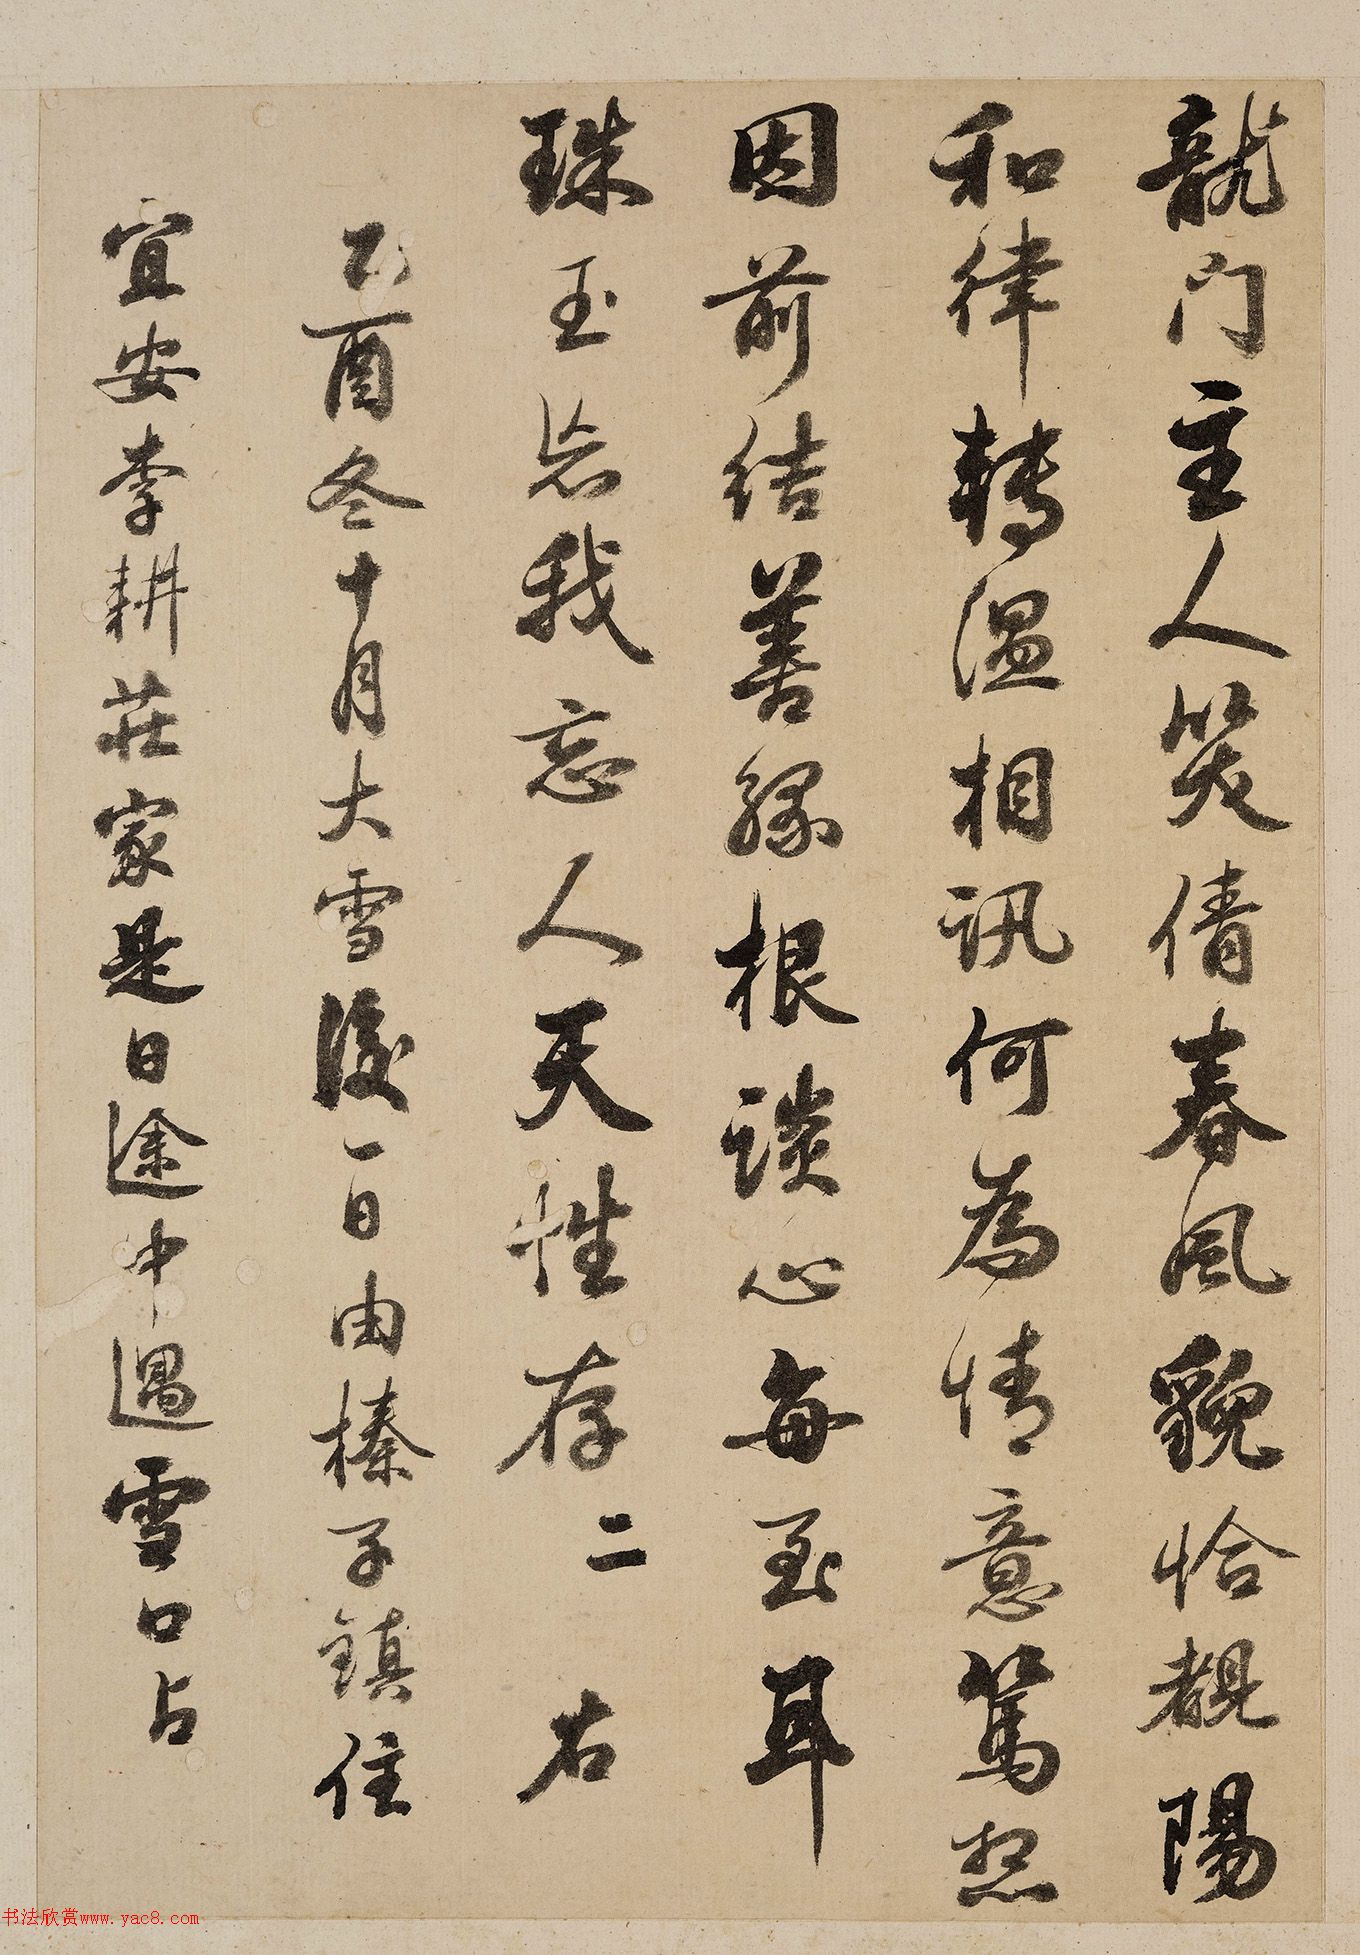 龍門主人笑倩春風貌恰覩陽
和律轉溫相訊何為情意篤想
因前結善緣根談心每至耳
珠玉我忘人天性存二 右
乙酉冬十月大雪後一日由榛子鎮住
宜安李耕莊家是日途中遇雪口占
书法欣赏www.yac8.com